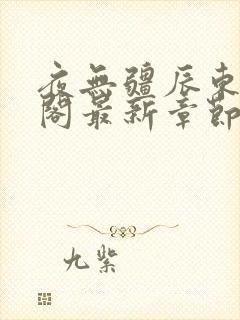 夜無疆辰東
閣最新章節
九紫